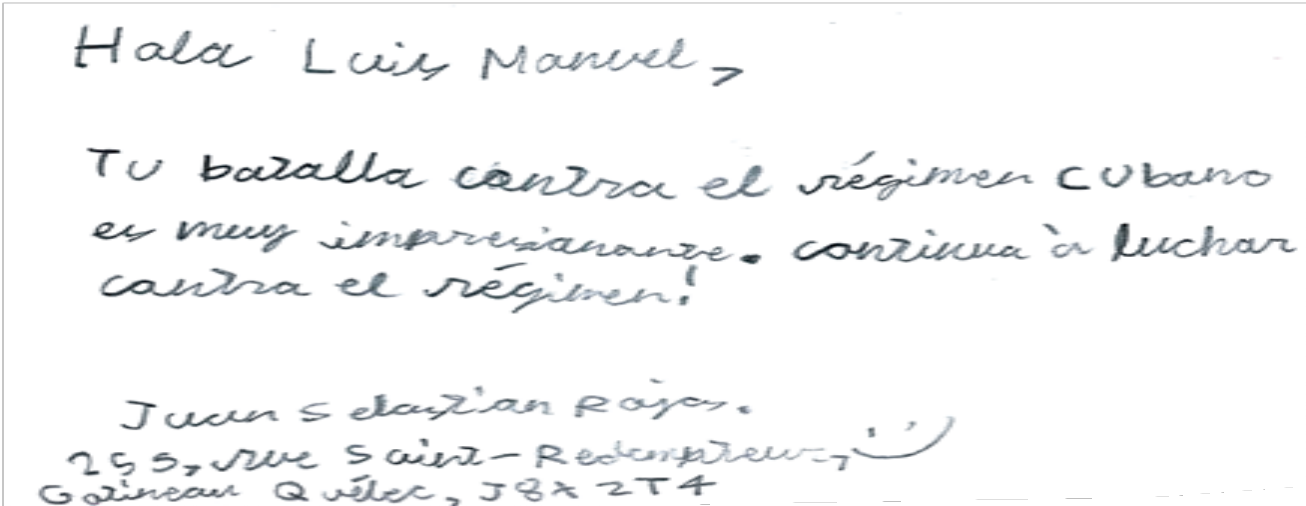 Hola Luis Manuel,
Tu batalla contra el régimen cubano
es muy impresionante. continua à luchar
contra el régimen!
Juan Sebastian Rojas.
255, rue Saint-Redempteur,
Gatineau Québec, J8X 2T4